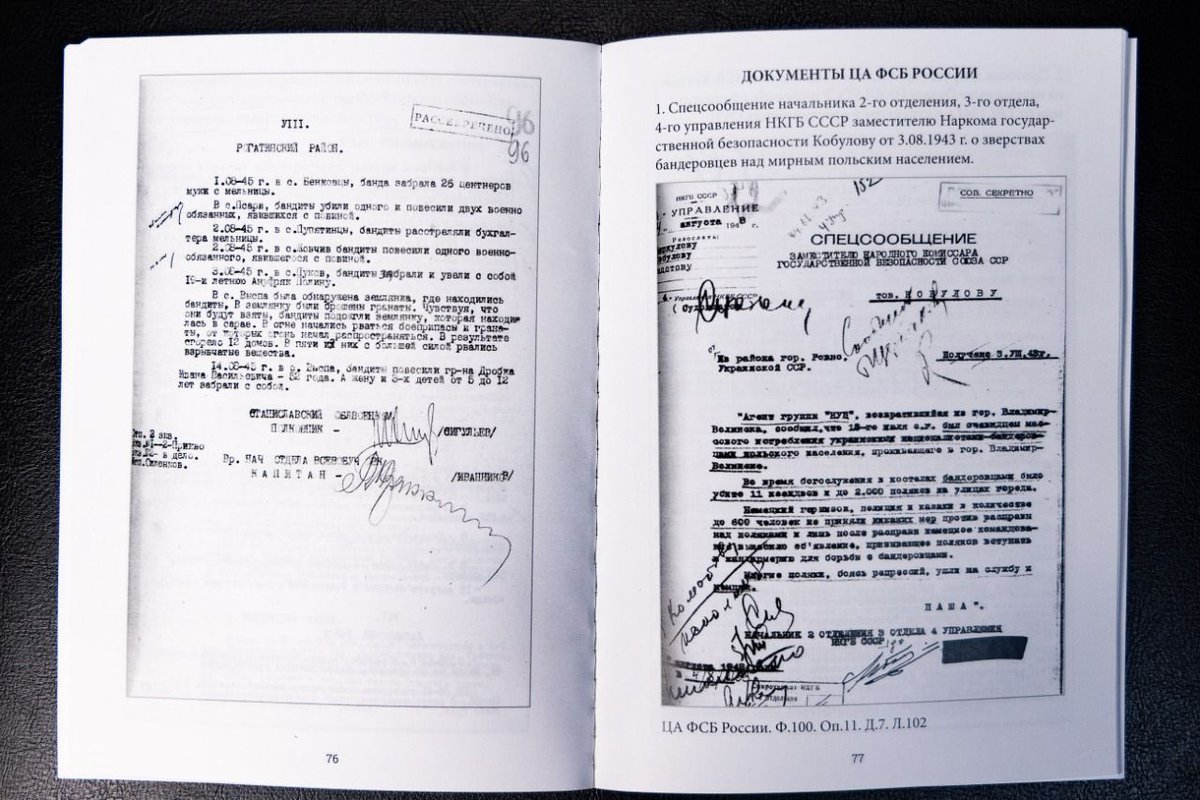 РАССЕКРЕЧЕНО
96
96
VIII.
РОГАТИНСКИЙ РАЙОН.
1.08-45 г. в с. Бенковцы, банда забрала 25 центнеров
муки с мельницы.
В с.Псари, бандиты убили одного и повесили двух военно
обязанных, явившихся с повиной.
2.08-45 г. в с.Лупятинцы, бандиты расстреляли бухгал-
тера мельницы.
2.08-45 г. в с.Жовчив бандиты повесили одного военно-
обязанного, явившегося с повиной.
3.08-45 г. в с.Луков, бандиты забрали и увели с собой
19-х летнюю Полину.
В с. Выспа была обнаружена землянка, где находились
бандиты, В землянку были брошены гранаты. Чувствуя, что
они будут взяты, бандиты подожгли землянку, которая находи
лась в сарае. В огне начались рваться боеприпасы и грана-
ты, от которых огонь начал распространяться. В результате
сгорело 12 домов. В пяти из них с большей силой рвались
взрывчатые вещества.
14.08-45 г. в с. Выспа, бандиты повесили гр-на Дробка
Ивана Васильевича - года. А жену и 3-х детей от 5 до 12
лет забрали с собой.
СТАНИСЛАВСКИЙ ОБЛВОЕНКОМ
ПОЛКОВНИК -
/СИГУЛЬЕВ/
2 экз.
в дело.
Вр. НАЧ ОТДЕЛА ВСЕВОБУЧ
КАПИТАН -
/ИВАННИКОВ/
76
ДОКУМЕНТЫ ЦА ФСБ РОССИИ
1. Спецсообщение начальника 2-го отделения, 3-го отдела,
4-го управления НКГБ СССР заместителю Наркома государ-
ственной безопасности Кобулову от 3.08.1943 г. о зверствах
бандеровцев над мирным польским населением.
НКГБ СССР
УПРАВЛЕНИЕ
августа 194 г.
152
СОВ. СЕКРЕТНО
СПЕЦСООБЩЕНИЕ
ЗАМЕСТИТЕЛЮ НАРОДНОГО КОМИССАРА
ГОСУДАРСТВЕННОЙ БЕЗОПАСНОСТИ СОЮЗА ССР
тов. КОБУЛОВУ
Из района гор. Ровно,
Украинской ССР.
Получено 3.VIII.43г.
"Агент группы возвратившийся из гор. Владимир-
Волынска, сообщил, что 18-го июля с.г. был очевидцем мас-
сового истребления украинскими националистами-бандеров-
цами польского населения, проживавшего в гор. Владимир-
Волынске.
Во время богослужения в костелах бандеровцами было
убито 11 ксендзов и до 2.000 поляков на улицах города.
Немецкий гарнизон, полиция и казаки в количестве
до 600 человек не приняли никаких мер против расправы
над поляками и лишь после расправы немецкое командова-
вывесило об'явление, призывающее поляков вступать
в жандармерию для борьбы с бандеровцами.
Многие поляки, боясь репрессий, ушли на службу к
немцам.
ПАША".
НАЧАЛЬНИК 2 ОТДЕЛЕНИЯ 3 ОТДЕЛА 4 УПРАВЛЕНИЯ
НКГБ СССР
ЦА ФСБ России. Ф.100. Оп.11. Д.7. Л.102
77